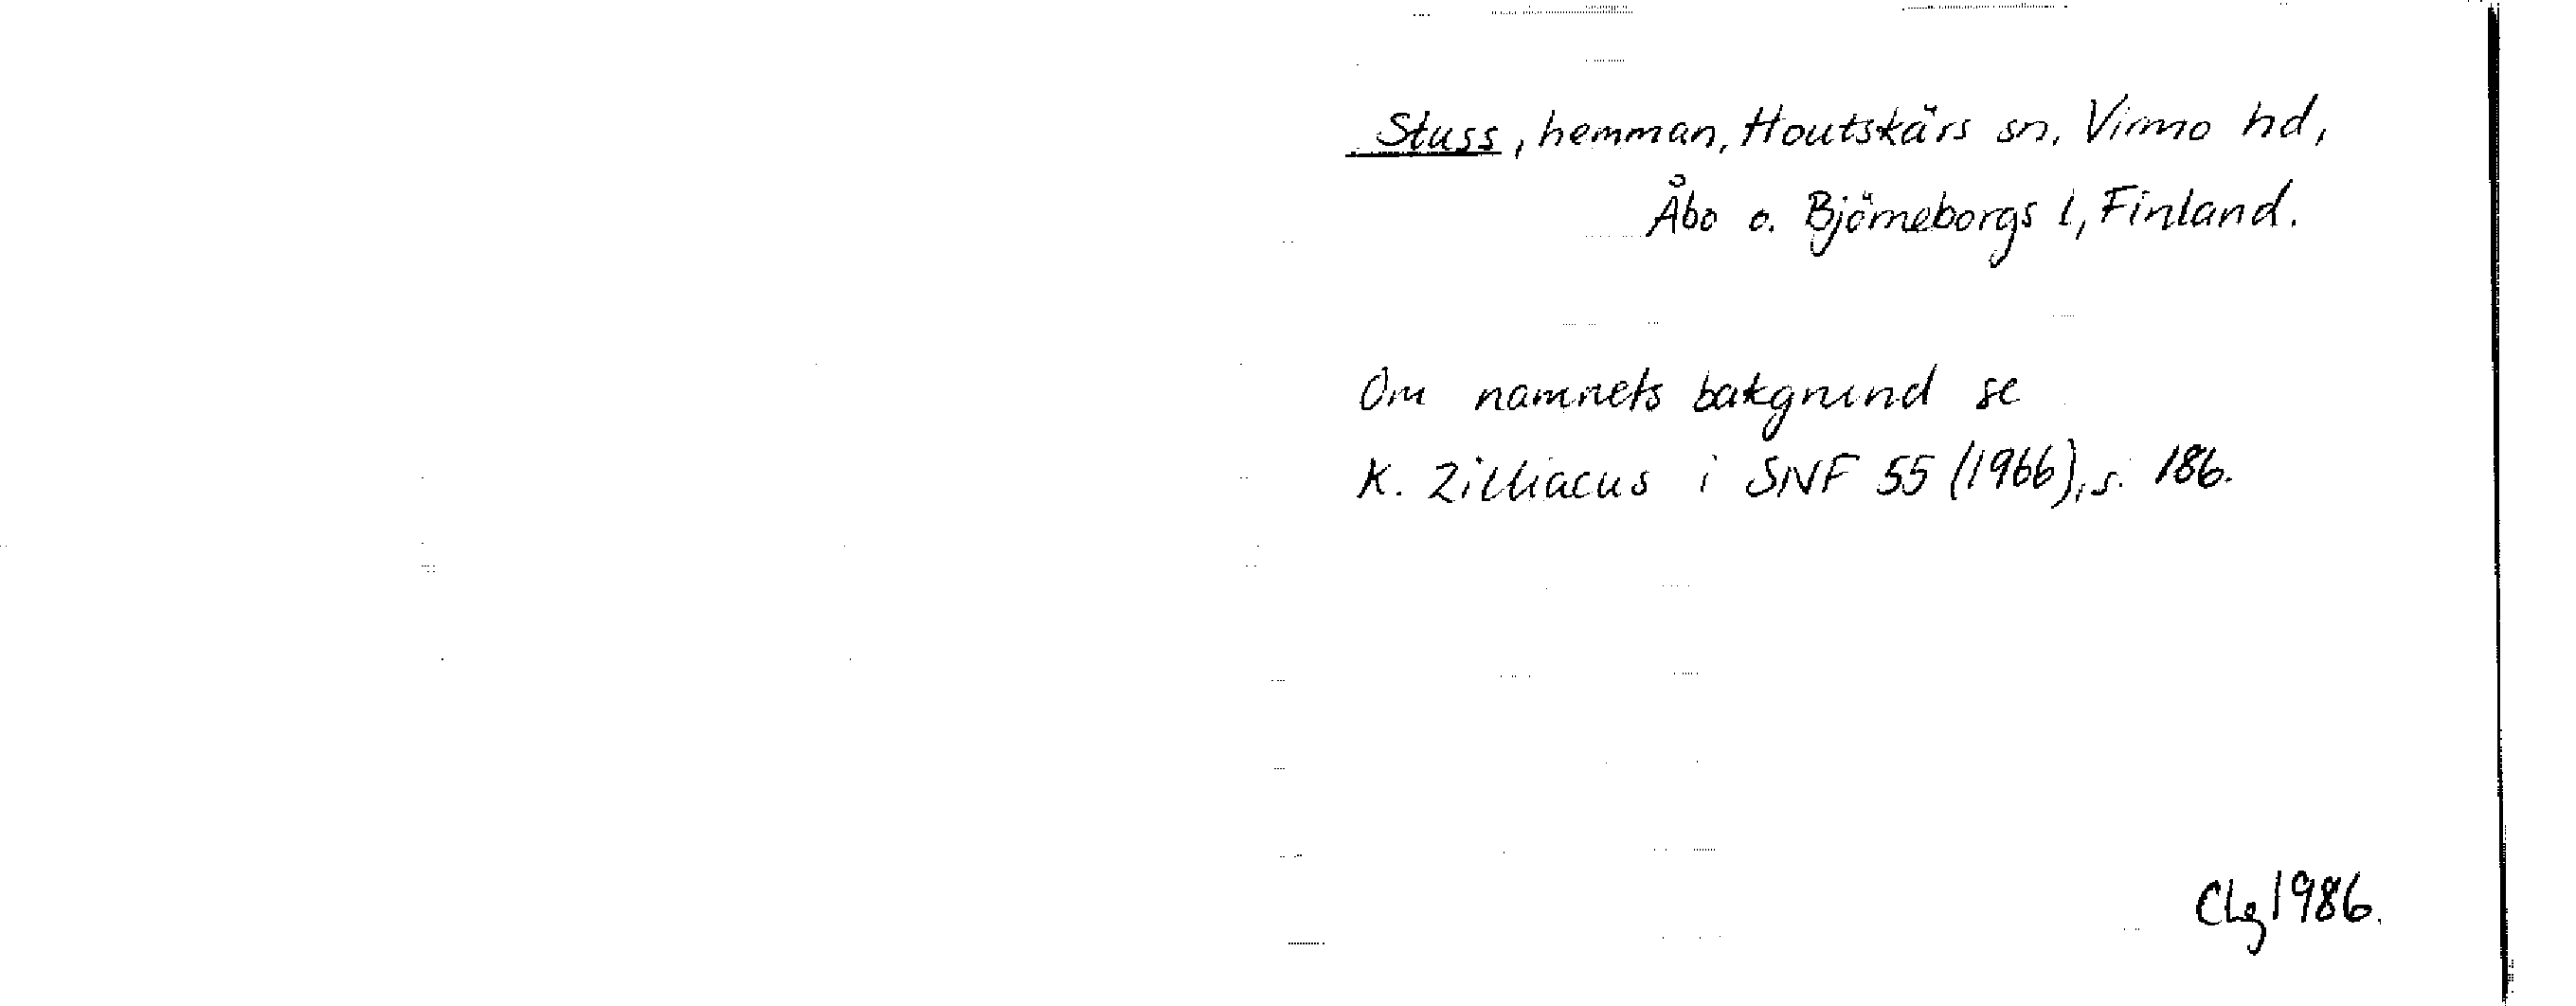 Stuss, hemman, Houtskärs sn, Virmo hd,
Åbo o. Björneborgs l, Finland.
Om namnets bakgrund se
K. Zilliacus i SNF 55 (1966), s. 186.
CLg 1986.